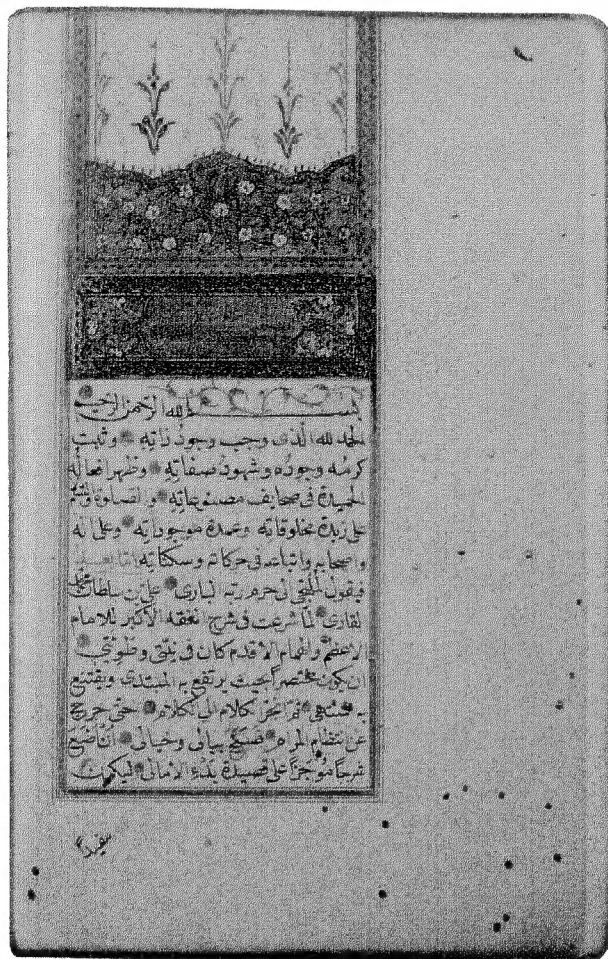 بسم الله الرحمن الرحيم
الحمد لله الذى وجب وجود ذاته وثبت
كرمه وجوده وشهود صفاته وظهر افعاله
الحميدة فى صحايف مصنوعاته والصلوة والتسليم
على زبدة مخلوقاته وعمدة موجوداته وعلى اله
واصحابه واتباعه فى حركاته وسكناته اما بعد
فيقول الملتجى الى حرم ربه البارى على بن سلطان محمد
القارى لما شرعت فى شرح الفقه الاكبر للامام
الاعظم والهمام الاقدم كان فى نيتى وطويتى
ان يكون مختصرا بحيث يرتفع به المبتدى ويقتنع
به المنتهى فجر الكلام الى الكلام حتى خرج
عن انتظام المرام فسنح ببالى وخيالى ان اضع
شرحا موجزا على قصيدة بدء الامالى ليكون
مفيدا